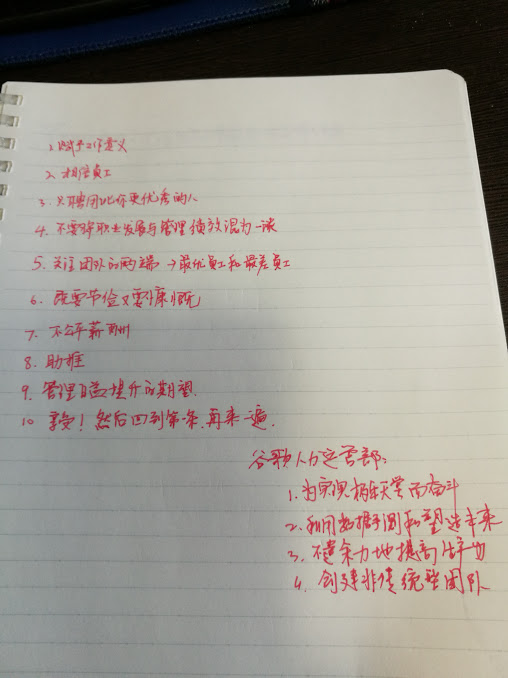 1. 赋予工作意义
2. 相信员工
3. 只聘用比你更优秀的人
4. 不要将职业发展与管理绩效混为一谈
5. 关注团队的两端 → 最优员工和最差员工
6. 既要节俭又要慷慨
7. 不公平薪酬
8. 助推
9. 管理日益提升的期望
10. 享受！然后回到第一条，再来一遍.
谷歌人力运营部：
1. 为实现极乐天堂而奋斗
2. 利用数据预测和塑造未来
3. 不遗余力地提高生产力
4. 创建非传统型团队